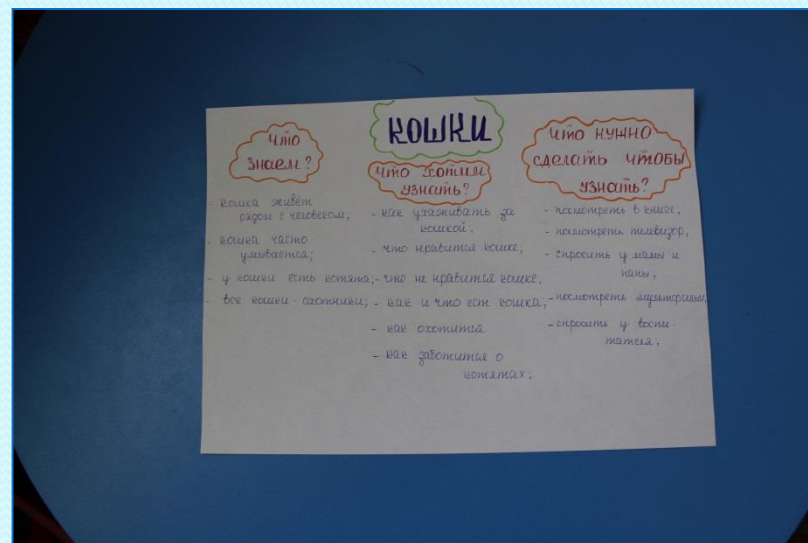 КОШКИ
что
знаем?
- кошка живёт
рядом с человеком;
- кошка часто
умывается;
- у кошки есть котята;
- все кошки - охотники;
что хотим
узнать?
- как ухаживать за
кошкой;
- что нравится кошке;
- что не нравится кошке;
- как и что ест кошка;
- как охотится
- как заботится о
котятах;
что нужно
сделать чтобы
узнать?
- посмотреть в книге;
- посмотреть телевизор;
- спросить у мамы и
папы;
- посмотреть мультфильм;
- спросить у воспи
тателя;